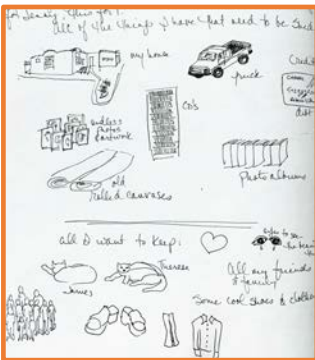 for Jenny, this for
all of the things I have that need to be Said
my house
truck
Credit
debt
CDs
endless
photos
artwork
old
rolled canvases
Photo albums
all I want to keep:
eyes to see
the
James
Theresa
All my friends
& family
Some cool shoes & clothes